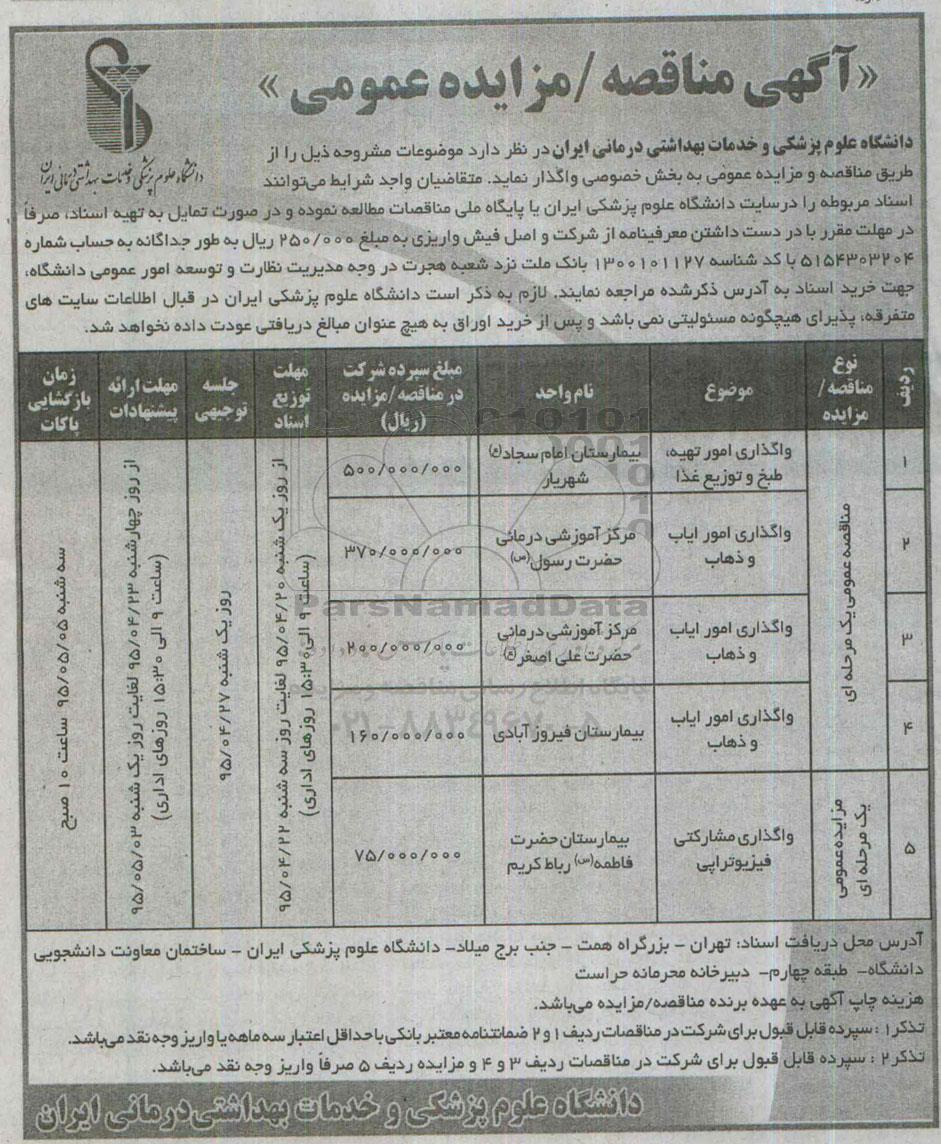 «آگهی مناقصه/مزایده عمومی»
دانشگاه علوم پزشکی و خدمات بهداشتی درمانی ایران
دانشگاه علوم پزشکی و خدمات بهداشتی درمانی ایران در نظر دارد موضوعات مشروحه ذیل را از
طریق مناقصه و مزایده عمومی به بخش خصوصی واگذار نماید. متقاضیان واجد شرایط می‌توانند
اسناد مربوطه را درسایت دانشگاه علوم پزشکی ایران یا پایگاه ملی مناقصات مطالعه نموده و در صورت تمایل به تهیه اسناد، صرفاً
در مهلت مقرر با در دست داشتن معرفینامه از شرکت و اصل فیش واریزی به مبلغ ۲۵۰/۰۰۰ ریال به طور جداگانه به حساب شماره
۵۱۵۴۳۰۳۲۰۴ با کد شناسه ۱۳۰۰۱۰۱۱۲۷ بانک ملت نزد شعبه هجرت در وجه مدیریت نظارت و توسعه امور عمومی دانشگاه،
جهت خرید اسناد به آدرس ذکرشده مراجعه نمایند. لازم به ذکر است دانشگاه علوم پزشکی ایران در قبال اطلاعات سایت های
متفرقه، پذیرای هیچگونه مسئولیتی نمی باشد و پس از خرید اوراق به هیچ عنوان مبالغ دریافتی عودت داده نخواهد شد.
ردیف
نوع
مناقصه/
مزایده
موضوع
نام واحد
مبلغ سپرده شرکت
در مناقصه/مزایده
(ریال)
مهلت
توزیع
اسناد
جلسه
توجیهی
مهلت ارائه
پیشنهادات
زمان
بازگشایی
پاکات
۱
مناقصه عمومی یک مرحله ای
واگذاری امور تهیه،
طبخ و توزیع غذا
بیمارستان امام سجاد(ع)
شهریار
۵۰۰/۰۰۰/۰۰۰
از روز یک شنبه ۹۵/۰۴/۲۰ لغایت روز سه شنبه ۹۵/۰۴/۲۲
(ساعت ۹ الی ۱۵:۳۰ روزهای اداری)
روز یک شنبه ۹۵/۰۴/۲۷
از روز چهارشنبه ۹۵/۰۴/۲۳ لغایت روز یک شنبه ۹۵/۰۵/۰۳
(ساعت ۹ الی ۱۵:۳۰ روزهای اداری)
سه شنبه ۹۵/۰۵/۰۵ ساعت ۱۰ صبح
۲
واگذاری امور ایاب
و ذهاب
مرکز آموزشی درمانی
حضرت رسول(ص)
۳۷۰/۰۰۰/۰۰۰
۳
واگذاری امور ایاب
و ذهاب
مرکز آموزشی درمانی
حضرت علی اصغر(ع)
۲۰۰/۰۰۰/۰۰۰
۴
واگذاری امور ایاب
و ذهاب
بیمارستان فیروز آبادی
۱۶۰/۰۰۰/۰۰۰
۵
مزایده عمومی
یک مرحله ای
واگذاری مشارکتی
فیزیوتراپی
بیمارستان حضرت
فاطمه(س) رباط کریم
۷۵/۰۰۰/۰۰۰
ParsNamadData
پایگاه اطلاع رسانی مناقصه و مزایده
۰۲۱-۸۸۳۴۹۶۷۰-۵
آدرس محل دریافت اسناد: تهران - بزرگراه همت - جنب برج میلاد- دانشگاه علوم پزشکی ایران - ساختمان معاونت دانشجویی
دانشگاه- طبقه چهارم- دبیرخانه محرمانه حراست
هزینه چاپ آگهی به عهده برنده مناقصه/مزایده می‌باشد.
تذکر۱: سپرده قابل قبول برای شرکت در مناقصات ردیف ۱ و ۲ ضمانتنامه معتبر بانکی با حداقل اعتبار سه ماهه یا واریز وجه نقد می‌باشد.
تذکر۲: سپرده قابل قبول برای شرکت در مناقصات ردیف ۳ و ۴ و مزایده ردیف ۵ صرفاً واریز وجه نقد می‌باشد.
دانشگاه علوم پزشکی و خدمات بهداشتی درمانی ایران